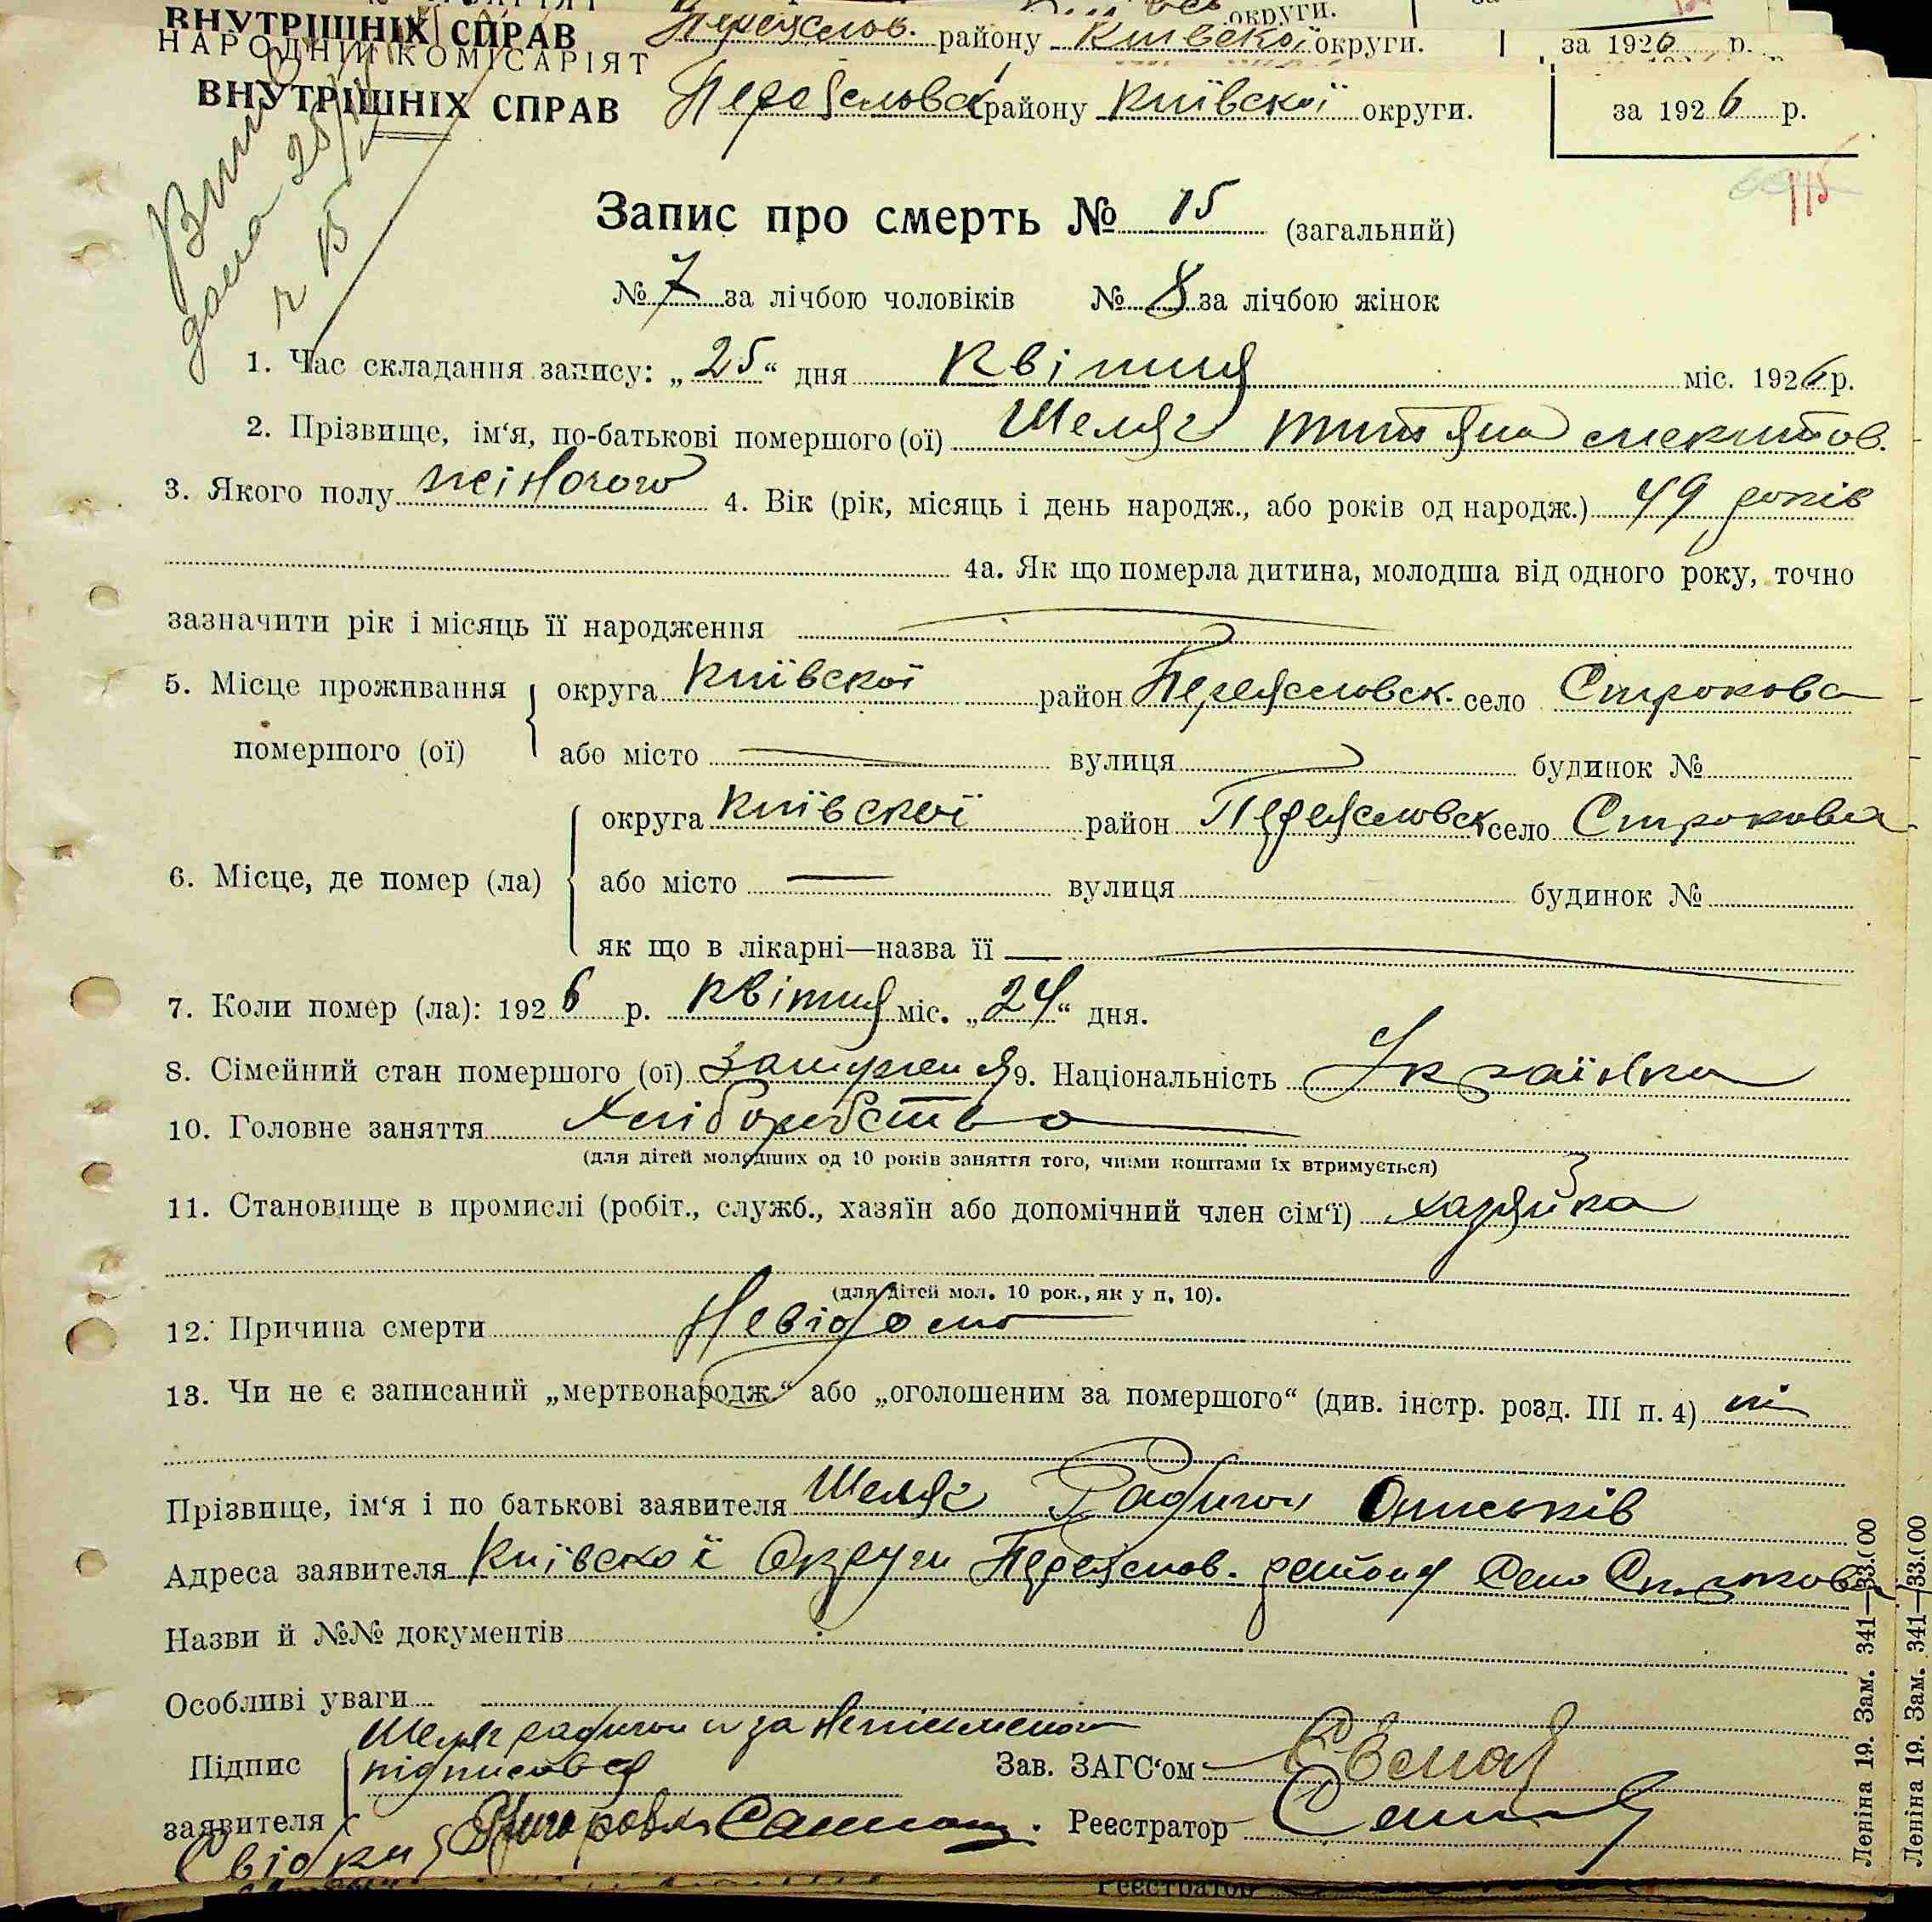 ВНУТРІШНІХ СПРАВ Переяслов. району Київської округи. за 1926 р.
НАРОДНІЙ КОМІСАРІЯТ
ВНУТРІШНІХ СПРАВ Переяславск району Київскої округи. за 1926 р.
115
Запис про смерть № 15 (загальний)
№ 7 за лічбою чоловіків № 8 за лічбою жінок
1. Час складання запису: „25“ дня Квітня міс. 1926 р.
2. Прізвище, ім‘я, по-батькові помершого (ої) Шеляг Титяна
3. Якого полу жіного 4. Вік (рік, місяць і день народж., або років од народж.) 49 років
4а. Як що померла дитина, молодша від одного року, точно
зазначити рік і місяць її народження
5. Місце проживання помершого (ої) округа Київскої район Переясловск. село Строкова
або місто вулиця будинок №
6. Місце, де помер (ла) округа Київскої район Переясловск село Строкова
або місто вулиця будинок №
як що в лікарні—назва її
7. Коли помер (ла): 1926 р. квітня міс. „24“ дня.
8. Сімейний стан помершого (ої) замужем 9. Національність Українка
10. Головне заняття Хліборобство
(для дітей молодших од 10 років заняття того, чиїми коштами їх втримується)
11. Становище в промислі (робіт., служб., хазяїн або допомічний член сім‘ї) хазяйка
(для дітей мол. 10 рок., як у п. 10).
12. Причина смерти Невідомо
13. Чи не є записаний „мертвонародж.“ або „оголошеним за помершого“ (див. інстр. розд. III п. 4) ні
Прізвище, ім‘я і по батькові заявителя Шеляг Радигон Ониськів
Адреса заявителя Київскої Округи Переяслов. району Село Строкова
Назви й №№ документів
Особливі уваги
Шеляг Радигон и за неписменого
Підпис заявителя підписався
Зав. ЗАГС‘ом
Реєстратор
Свідки
Реєстратор
Леніна 19. Зам. 341—33.000
Леніна 19. Зам. 341—33.000